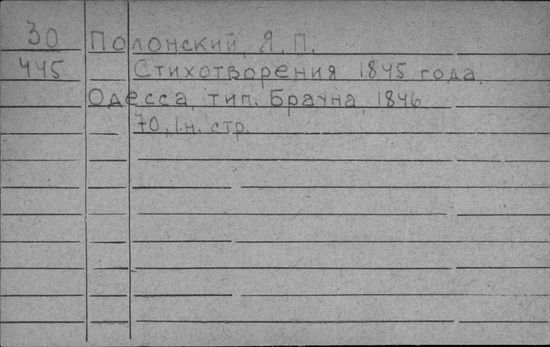 30 Полонский, Я. П.
445 Стихотворения 1845 года.
Одесса, тип. Брауна, 1846
70, 1.н. стр.